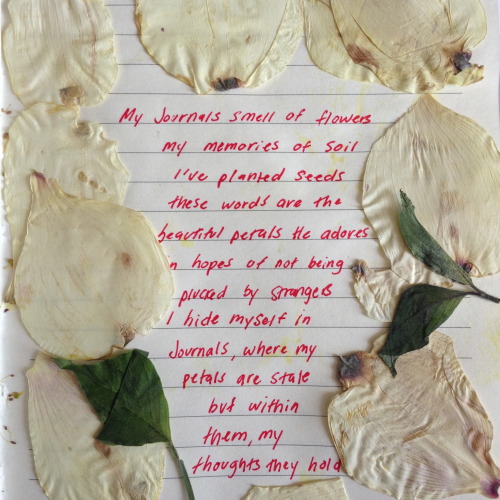 My Journals smell of flowers
my memories of soil
I've planted seeds
these words are the
beautiful petals He adores
in hopes of not being
plucked by strangers
I hide myself in
Journals, where my
petals are stale
but within
them, my
thoughts they hold